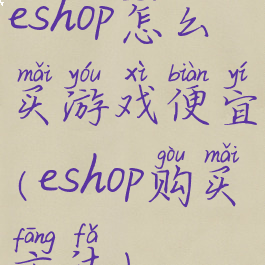 eshop怎么
mǎi yóu xì biàn yí
买游戏便宜
gòu mǎi
(eshop购买
fāng fǎ
方法)